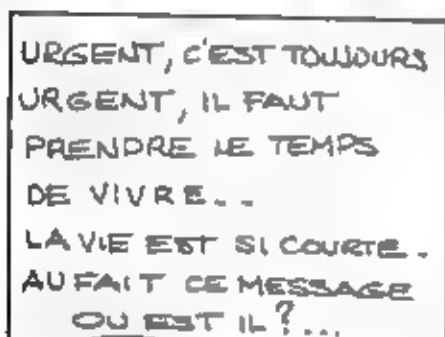 URGENT, C'EST TOUJOURS
URGENT, IL FAUT
PRENDRE LE TEMPS
DE VIVRE..
LA VIE EST SI COURTE.
AU FAIT CE MESSAGE
OU EST IL?...